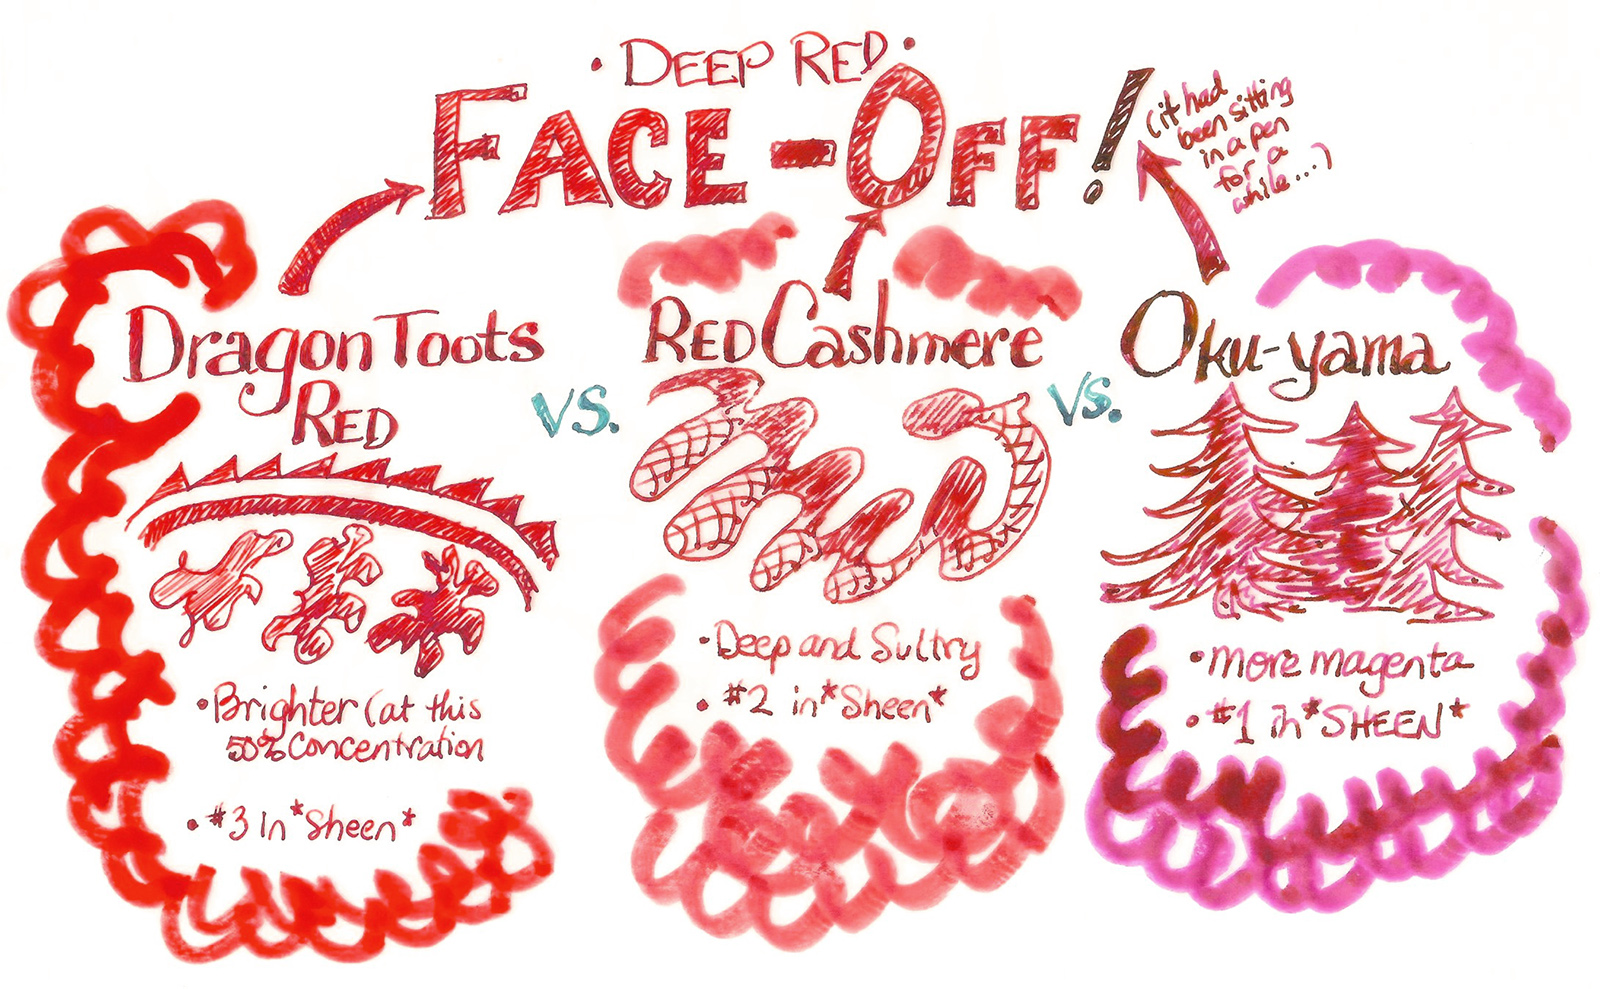 • DEEP RED •
FACE-OFF!
(it had
been sitting
in a pen
for a
while...)
Dragon Toots
RED
vs.
RED Cashmere
vs.
Oku-yama
• Brighter (at this
50% Concentration
• #3 in *Sheen*
• Deep and Sultry
• #2 in *Sheen*
• more magenta
• #1 in *SHEEN*